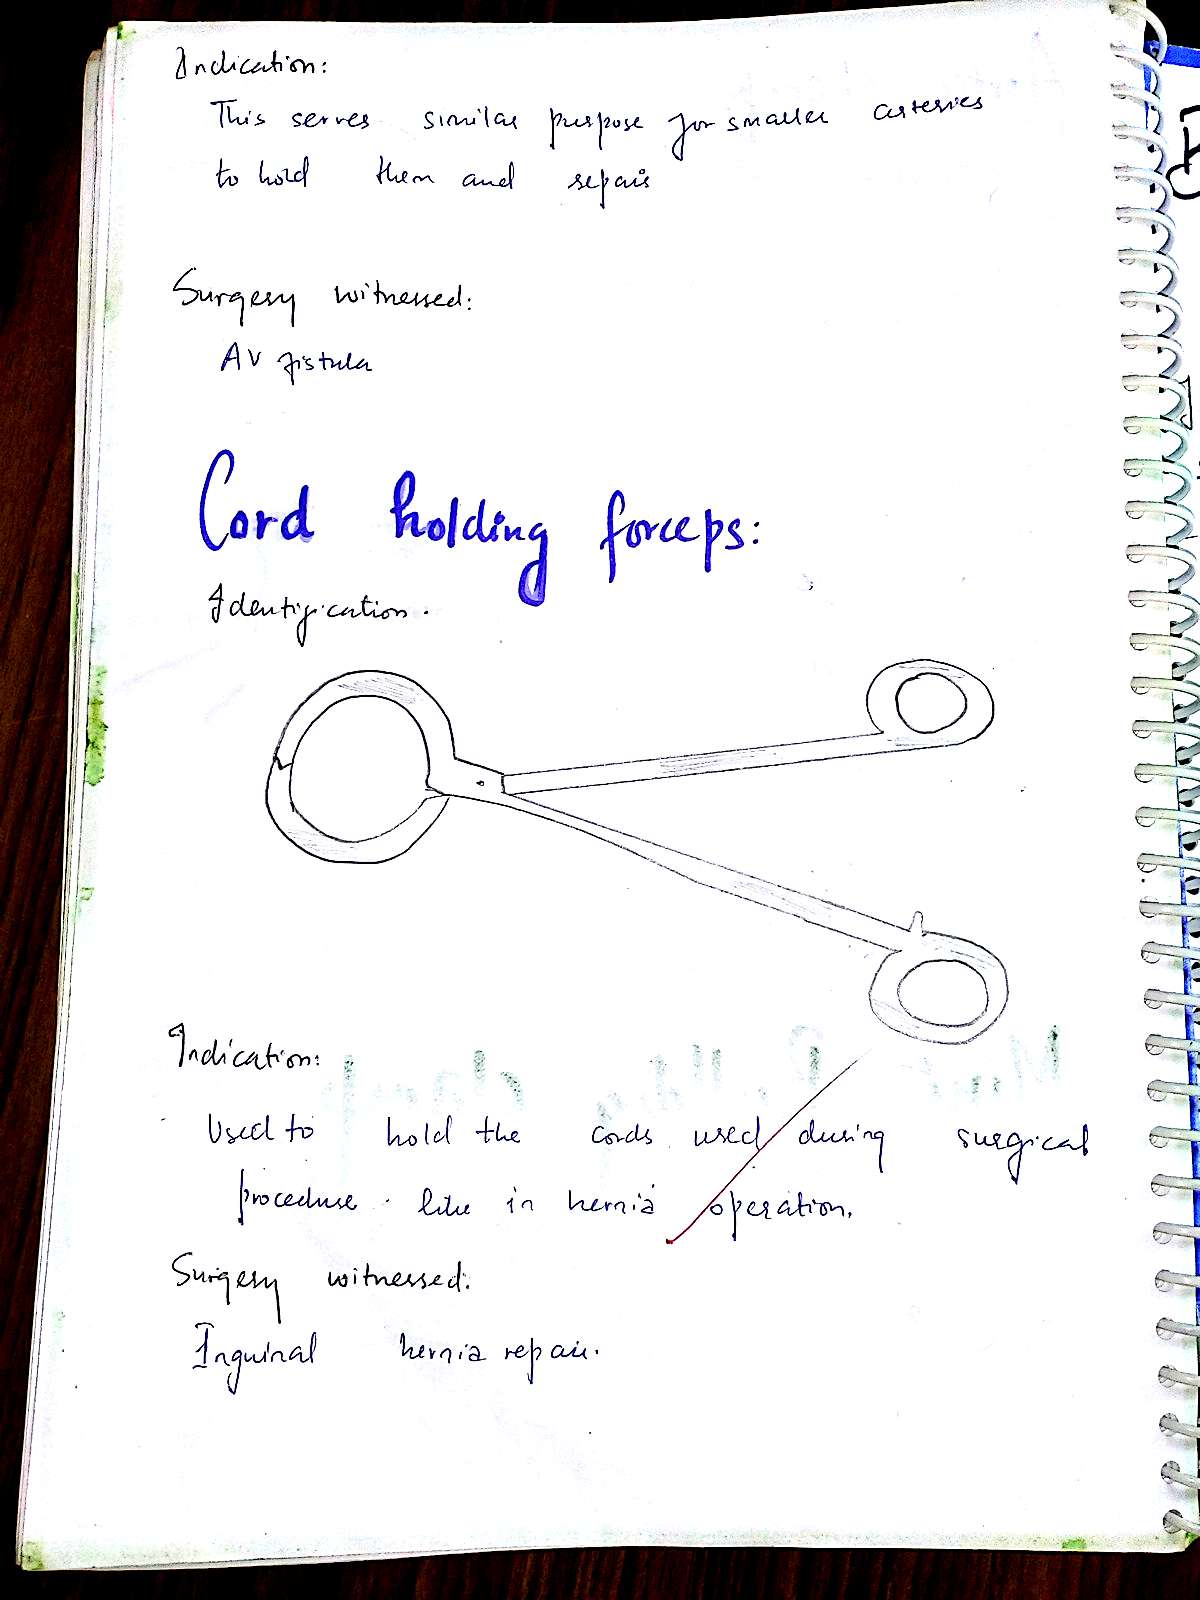 Indication:
This serves similar purpose for smaller arteries
to hold them and repair
Surgery witnessed:
AV fistula
Cord holding forceps:
Identification.
Indication:
Used to hold the cords used during surgical
procedure like in hernia operation.
Surgery witnessed:
Inguinal hernia repair.